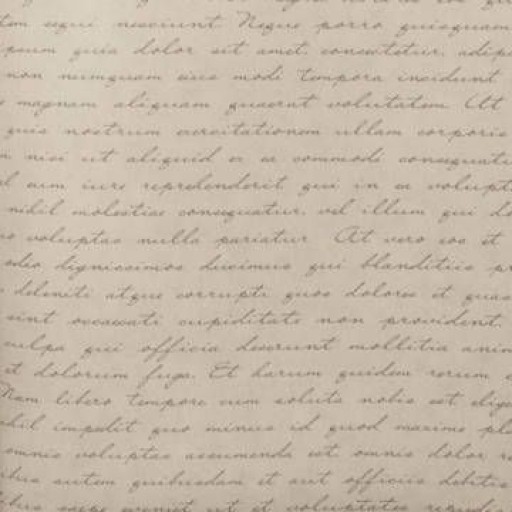 sequi nesciunt Neque porro quisquam
ipsum quia dolor sit amet, consectetur, adipi
non numquam eius modi tempora incidunt
magnam aliquam quaerat voluptatem Ut
quis nostrum exercitationem ullam corporis
nisi ut aliquid ex ea commodi consequatu
eum iure reprehenderit qui in ea volupt
nihil molestiae consequatur, vel illum qui do
voluptas nulla pariatur At vero eos et
odio dignissimos ducimus qui blanditiis pr
deleniti atque corrupti quos dolores et quas
sint occaecati cupiditate non provident,
culpa qui officia deserunt mollitia anim
et dolorum fuga. Et harum quidem rerum
Nam libero tempore cum soluta nobis est elige
impedit quo minus id quod maxime pla
omnis voluptas assumenda est omnis dolor re
autem quibusdam et aut officiis debitis
saepe eveniet ut et voluptates